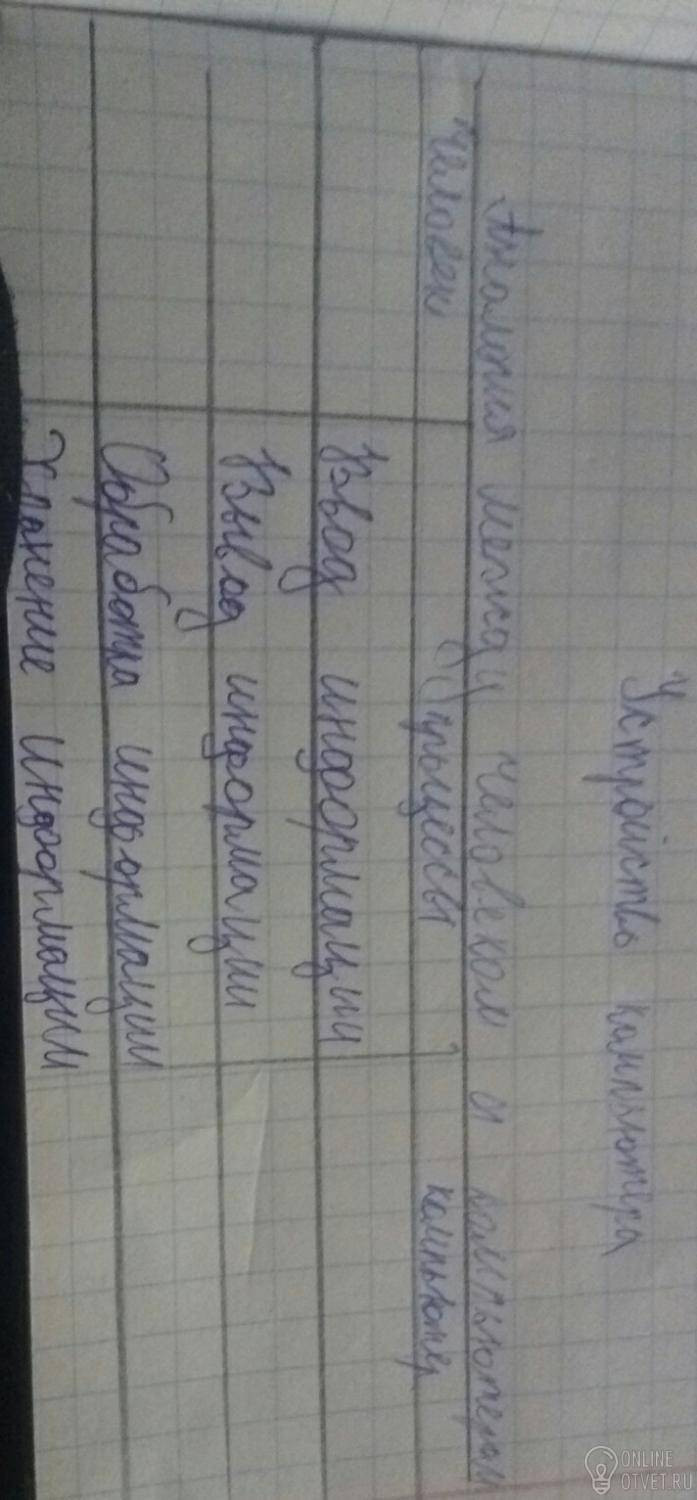 Устройство компьютера
Аналогия между человеком и компьютером
человек процессы компьютер
Ввод информации
Вывод информации
Обработка информации
Хранение информации
ONLINE
OTVET.RU